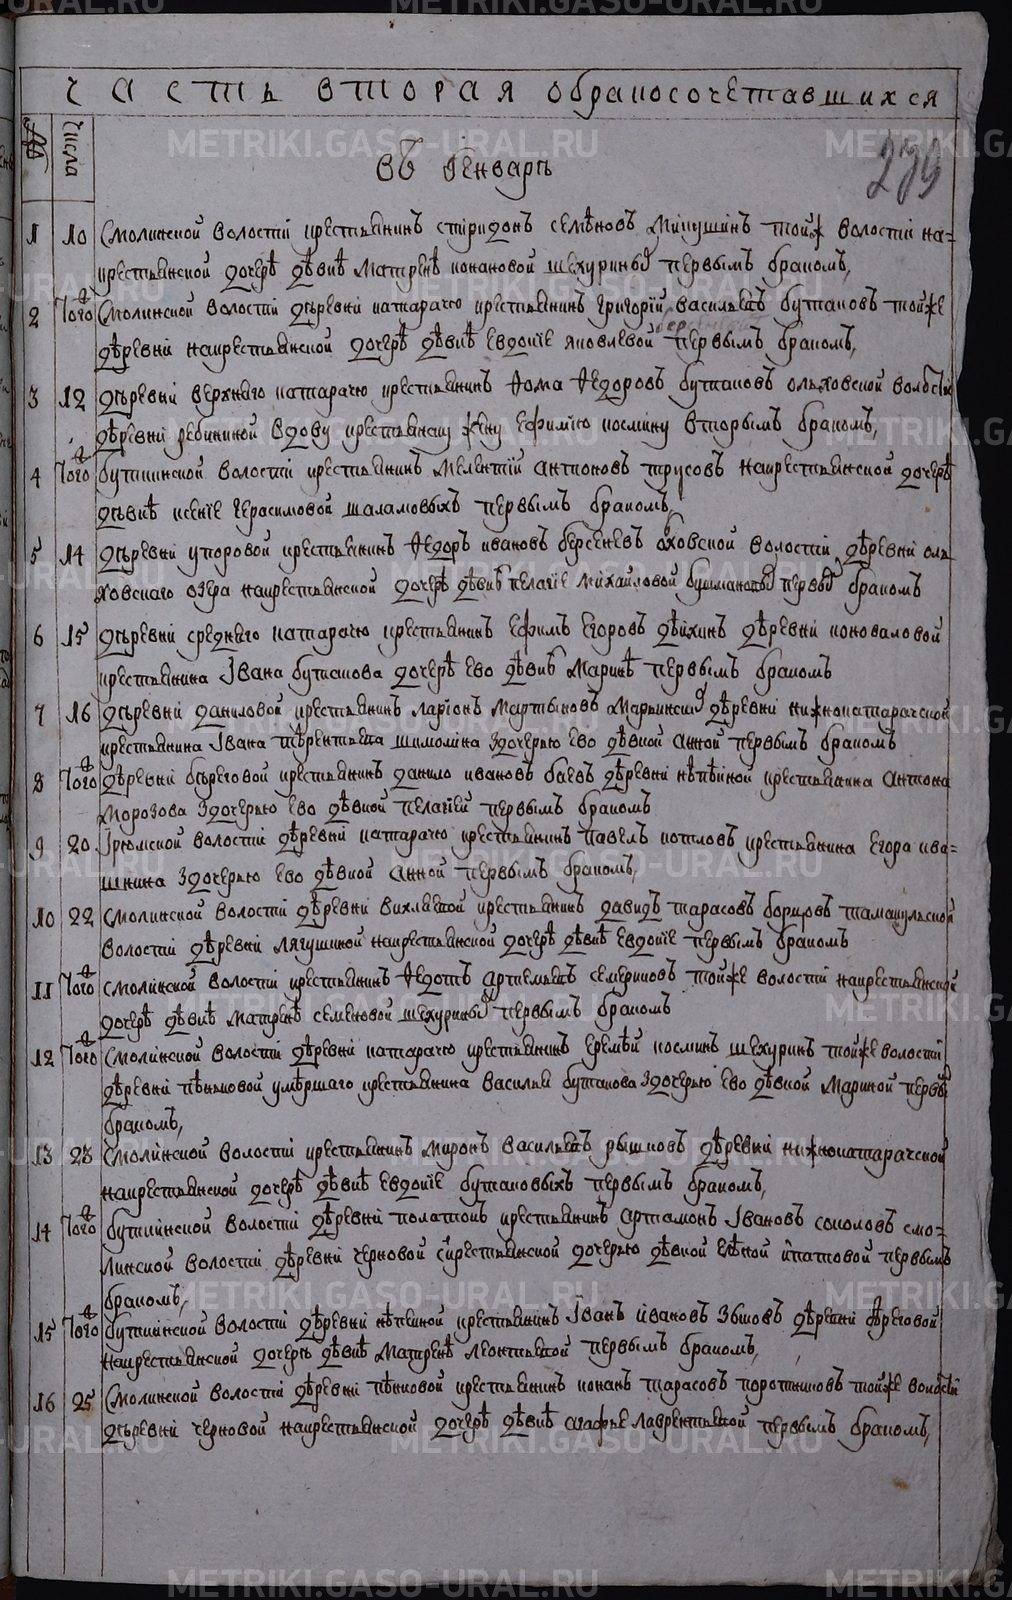 часть вторая обракосочетавшихся
№ числа
въ Генваръ
279
1 10 Смолинской волости крестьянинъ спиридонъ семѣновъ Микушинъ тойж волости на
крестьянской дочерѣ дѣвиѣ Матренѣ конановой шехуриных первымъ бракомъ,
2 Того Смолинской волости дѣревни катарачю крестьянинъ григориӣ васильевъ бутаковъ тойже
дѣревни накрестьянской дочерѣ дѣвиѣ Евдокіе яковлевой первымъ бракомъ,
3 12 дѣревни верхняго катарачю крестьянинъ Ѳома Ѳедоровъ бутаковъ ольховской волости
дѣревни рябининой вдову крестьянску жену Ефимію космину вторымъ бракомъ,
4 Того буткинской волости крестьянинъ Мелентіӣ антоновъ трусовъ накрестьянской дочерѣ
дѣвиѣ ксеніе герасимовой шаламовыхъ первымъ бракомъ,
5 14 дѣревни упоровой крестьянинъ Ѳедоръ ивановъ берсеневъ оховской волости дѣревни оль
ховскаго озера накрестьянской дочерѣ дѣвиѣ пелагіе михайловой первы бракомъ
6 15 дѣревни средняго катарачю крестьянинъ Ефимъ Егоровъ дѣйхинъ дѣревни коноваловой
крестьянина Iвана бутакова дочерѣ Ево дѣвиѣ Маринѣ первымъ бракомъ
7 16 дѣревни даниловой крестьянинъ ларіонъ мартыновъ дѣревни нижнокатарачской
крестьянина Iвана тѣрентьева шимолина здочерью Ево дѣвкой анной первымъ бракомъ
8 Того дѣревни бѣреговой крестьянинъ данило ивановъ баевъ дѣревни нѣпѣиной крестьянина антона
Морозова здочерью Ево дѣвкой пелагіей первымъ бракомъ
9 20 Iрюмской волости дѣревни катарачю крестьянинъ павелъ котловъ крестьянина Егора ква=
шнина здочерью Ево дѣвкой анной первымъ бракомъ,
10 22 Смолинской волости дѣревни вихляевой крестьянинъ давидъ тарасовъ борцовъ тамакульской
волости дѣревни лягушиной накрестьянской дочерѣ дѣвиѣ Евдокіе первымъ бракомъ
11 Того смолинской волости крестьянинъ Ѳедотъ артемьевъ семериковъ тойже волости накрестьянской
дочерѣ дѣвиѣ матренѣ семеновой шехуриных первымъ бракомъ
12 Того Смолинской волости дѣревни катарачю крестьянинъ Еремѣӣ косминъ шехуринъ тойже волости
дѣревни пѣньковой умѣршаго крестьянина василья бутакова здочерью Ево дѣвкой Мариной первы
бракомъ,
13 23 Смолинской волости крестьянинъ миронъ васильевъ рышковъ дѣревни нижнокатарачской
накрестьянской дочерѣ дѣвиѣ Евдокіе бутаковыхъ первымъ бракомъ,
14 Того буткинской волости дѣревни полаткахъ крестьянинъ артамонъ Iвановъ соколовъ смо-
линской волости дѣревни черновой скрестьянской дочерью дѣвкой Елѣной ипатовой первымъ
бракомъ,
15 Того буткинской волости дѣревни нѣпеиной крестьянинъ Iванъ ивановъ зыковъ дѣревни бѣреговой
накрестьянской дочерѣ дѣвиѣ Матренѣ леонтьевой первымъ бракомъ,
16 25 Смолинской волости дѣревни пѣнковой крестьянинъ конанъ тарасовъ поротниковъ тойже волости
дѣревни черновой накрестьянской дочерѣ дѣвиѣ агафье лаврентьевой первымъ бракомъ,
METRIKI.GASO-URAL.RU